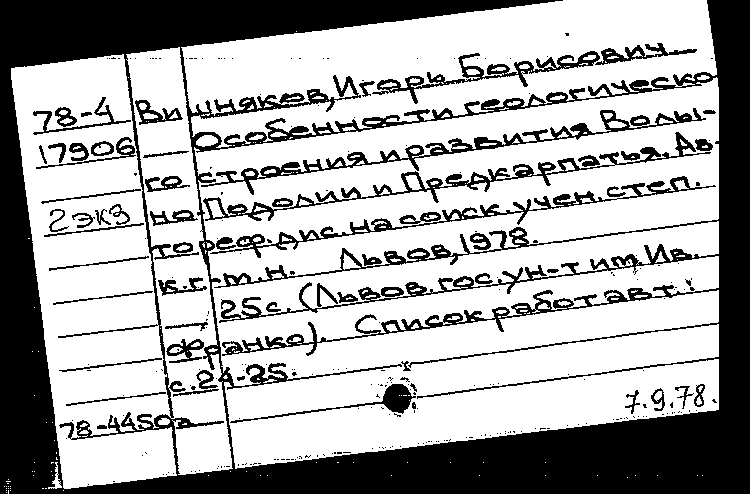 78-4 Вишняков, Игорь Борисович
17906 Особенности геологическо
го строения и развития Волы-
2 экз но-Подолии и Предкарпатья. Ав-
тореф. дис. на соиск. учен. степ.
к.г.-м.н. Львов, 1978.
25с. (Львов. гос. ун-т им. Ив.
Франко). Список работ авт.:
с. 24-25.
78-4450а
7.9.78.